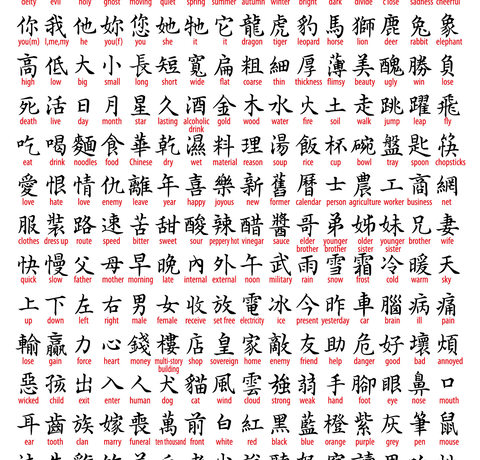 deity evil holy ghost moving quiet spring summer autumn winter bright dark divide close sadness cheerful
你 我 他 妳 您 她 牠 它 龍 虎 豹 馬 獅 鹿 兔 象
you(m) I,me,my he you(f) you she it it dragon tiger leopard horse lion deer rabbit elephant
高 低 大 小 長 短 寬 扁 粗 細 厚 薄 美 醜 勝 負
high low big small long short wide flat coarse thin thickness flimsy beauty ugly win lose
死 活 日 月 星 久 酒 金 木 水 火 土 走 跳 躍 飛
death live day month star lasting alcoholic gold wood water fire soil walk jump leap fly
drink
吃 喝 麵 食 華 乾 濕 料 理 湯 飯 杯 碗 盤 匙 筷
eat drink noodles food Chinese dry wet material reason soup rice cup bowl tray spoon chopsticks
愛 恨 情 仇 離 年 喜 樂 新 舊 曆 士 農 工 商 網
love hate love enemy leave year happy joyous new former calendar person agriculture worker business net
服 裝 路 速 苦 甜 酸 辣 醋 醬 哥 弟 姊 妹 兄 妻
clothes dress up route speed bitter sweet sour peppery hot vinegar sauce elder younger elder younger brother wife
brother brother sister sister
快 慢 父 母 早 晚 內 外 午 軍 雨 雪 霜 冷 暖 天
quick slow father mother morning late internal external noon military rain snow frost cold warm sky
上 下 左 右 男 女 收 放 電 冰 今 昨 車 腦 病 痛
up down left right male female receive set free electricity ice present yesterday car brain ill pain
輸 贏 力 心 錢 樓 店 皇 家 敵 友 助 危 好 壞 煩
lose gain force heart money multi-story shop sovereign home enemy friend help danger good bad annoyed
building
惡 孩 出 入 人 犬 貓 風 雲 強 弱 手 腳 眼 鼻 口
wicked child exit enter human dog cat wind cloud strong weak hand foot eye nose mouth
耳 齒 族 嫁 喪 萬 前 白 紅 黑 藍 橙 紫 灰 筆 鼠
ear tooth clan marry funeral ten thousand front white red black blue orange purple grey pen mouse